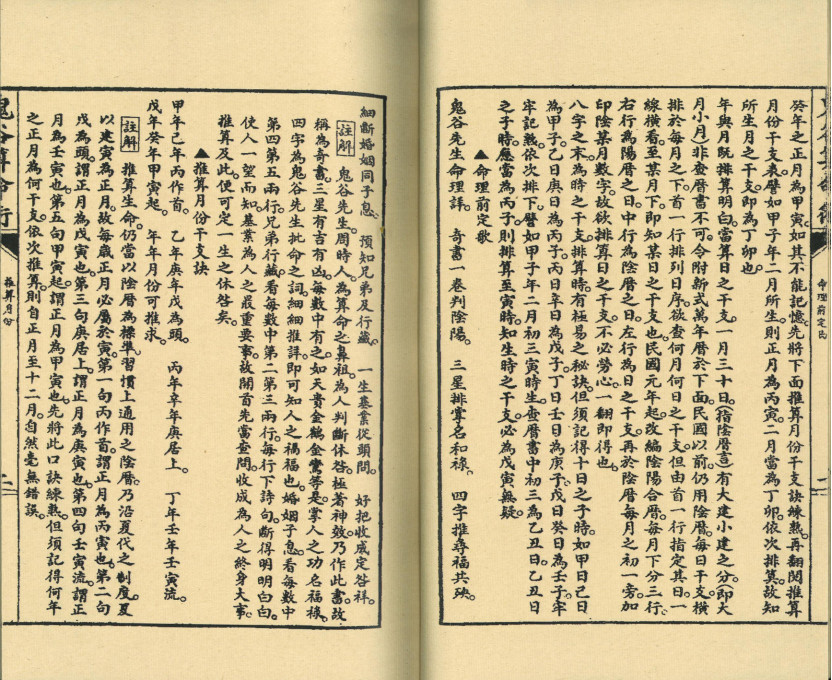 癸年之正月為甲寅。如其不能記憶。先將下面推算月份干支訣練熟。再翻閱推算
月份干支表。譬如甲子年二月所生。則正月為丙寅。二月當為丁卯。依次排算。故知
所生月之干支。即為丁卯也。
年與月既排算明白。當算日之干支。一月三十日。(指陰曆言)有大建小建之分。(即大
月小月)非查曆書不可。今附新式萬年曆於下面。民國以前。仍用陰曆。每日干支。橫
排於每月之下。首一行排列日序。欲查何月何日之干支。但由首一行指定其日。一
線橫看。至某月下。即知某日之干支也。民國元年起。改編陰陽合曆。每月下分三行。
右行為陽曆之日。中行為陰曆之日。左行為日之干支。再於陰曆每月之初一。旁加
印陰某月數字。故欲排算日之干支。不必勞心。一翻即得也。
八字之末為時之干支。排算時有極易之秘訣。但須記得十日之子時。如甲日己日
為甲子。乙日庚日為丙子。丙日辛日為戊子。丁日壬日為庚子。戊日癸日為壬子。牢
牢記熟。依次排下。譬如甲子年二月初三寅時生。查曆書中初三為乙丑日。乙丑日
之子時。應當為丙子。則排算至寅時。知生時之干支必為戊寅無疑。
▲命理前定歌
鬼谷先生命理詳。 奇書一卷判陰陽。 三星排掌名和祿。 四字推尋福共殃。
命理前定氏
細斷婚姻同子息。 預知兄弟及行藏。 一生基業從頭問。 好把收成定谷祥。
註解 鬼谷先生。周時人。為算命之鼻祖。為人判斷休咎。極著神效。乃作此書。故
稱為奇書。三星有吉有凶。每數中有之。如天貴金鶴金鸞等是。掌人之功名福祿。
四字為鬼谷先生批命之詞。細細推詳。即可知人之禍福也。婚姻子息。看每數中
第四第五兩行。兄弟行藏。看每數中第二第三兩行。每行下詩句。斷得明明白白。
使人一望而知。基業為人之最重要事。故開首先當查問。收成為人之終身大事。
推算及此。便可定一生之休咎矣。
▲推算月份干支訣
甲年己年丙作首。 乙年庚年戊為頭。 丙年辛年庚居上。 丁年壬年壬寅流。
戊年癸年甲寅起。 年年月份可推求。
註解 推算生命。仍當以陰曆為標準。習慣上通用之陰曆。乃沿夏代之制度。夏
以建寅為正月。故每歲正月必屬於寅。第一句丙作首。謂正月為丙寅也。第二句
戊為頭。謂正月為戊寅也。第三句庚居上。謂正月為庚寅也。第四句壬寅流。謂正
月為壬寅也。第五句甲寅起。謂正月為甲寅也。先將此口訣練熟。但須記得何年
之正月為何干支。依次推算。則自正月至十二月。自然毫無錯誤。
鬼谷算命術
推算月份